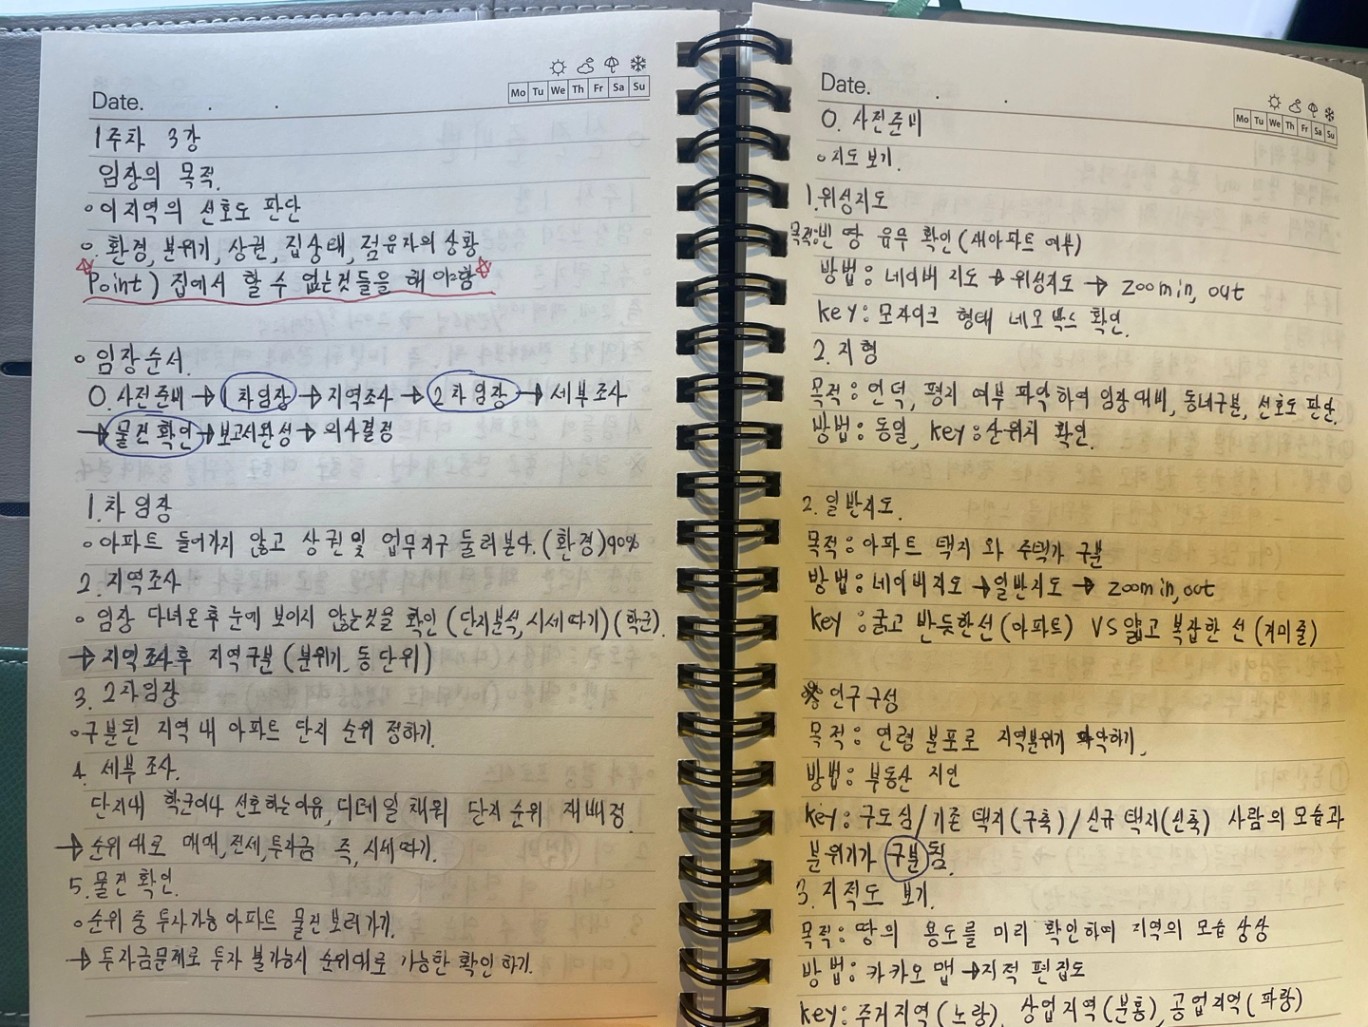 Date. . .
Mo Tu We Th Fr Sa Su
1주차 3강
임장의 목적.
o 이지역의 선호도 판단
o 환경, 분위기, 상권, 집상태, 점유자의 상황
☆Point) 집에서 할 수 없는것들을 해야함☆
o 임장순서.
0. 사전준비 → 1차임장 → 지역조사 → 2차 임장 → 세부조사
→ 물건확인 → 보고서완성 → 의사결정
1. 차 임장
o 아파트 들어가지 않고 상권 및 업무지구 둘러본다. (환경)90%
2. 지역조사
o 임장 다녀온후 눈에 보이지 않는것을 확인 (단지분석, 시세따기)(학군).
→ 지역조사후 지역구분 (분위기, 동단위)
3. 2차임장
o 구분된 지역 내 아파트 단지 순위 정하기.
4. 세부조사.
단지내 학군이나 선호하는이유, 디테일 채워 단지 순위 재배정.
→ 순위대로 매매, 전세, 투자금 즉, 시세따기.
5. 물건 확인.
o 순위 중 투자가능 아파트 물건보러가기.
→ 투자금문제로 투자 불가능시 순위대로 가능한 확인 하기.
Date. . .
Mo Tu We Th Fr Sa Su
0. 사전준비
o 지도 보기.
1. 위성지도
목적: 빈 땅 유무 확인 (새아파트 여부)
방법: 네이버 지도 → 위성지도 → zoom in, out
key: 모자이크 형태 네모 박스 확인.
2. 지형
목적: 언덕, 평지 여부 파악하여 임장 대비, 동네구분, 선호도 판단.
방법: 동일, key: 산위치 확인.
2. 일반지도.
목적: 아파트 택지 와 주택가 구분
방법: 네이버지도 → 일반지도 → zoom in, out
key: 굵고 반듯한선 (아파트) VS 얇고 복잡한 선 (거미줄)
※ 인구 구성
목적: 연령 분포로 지역분위기 파악하기.
방법: 부동산 지인
key: 구도심/기존 택지(구축)/신규 택지(신축) 사람의 모습과
분위기가 구분됨.
3. 지적도 보기.
목적: 땅의 용도를 미리 확인하여 지역의 모습 상상
방법: 카카오 맵 → 지적 편집도
key: 주거지역 (노랑), 상업지역 (분홍), 공업지역 (파랑)